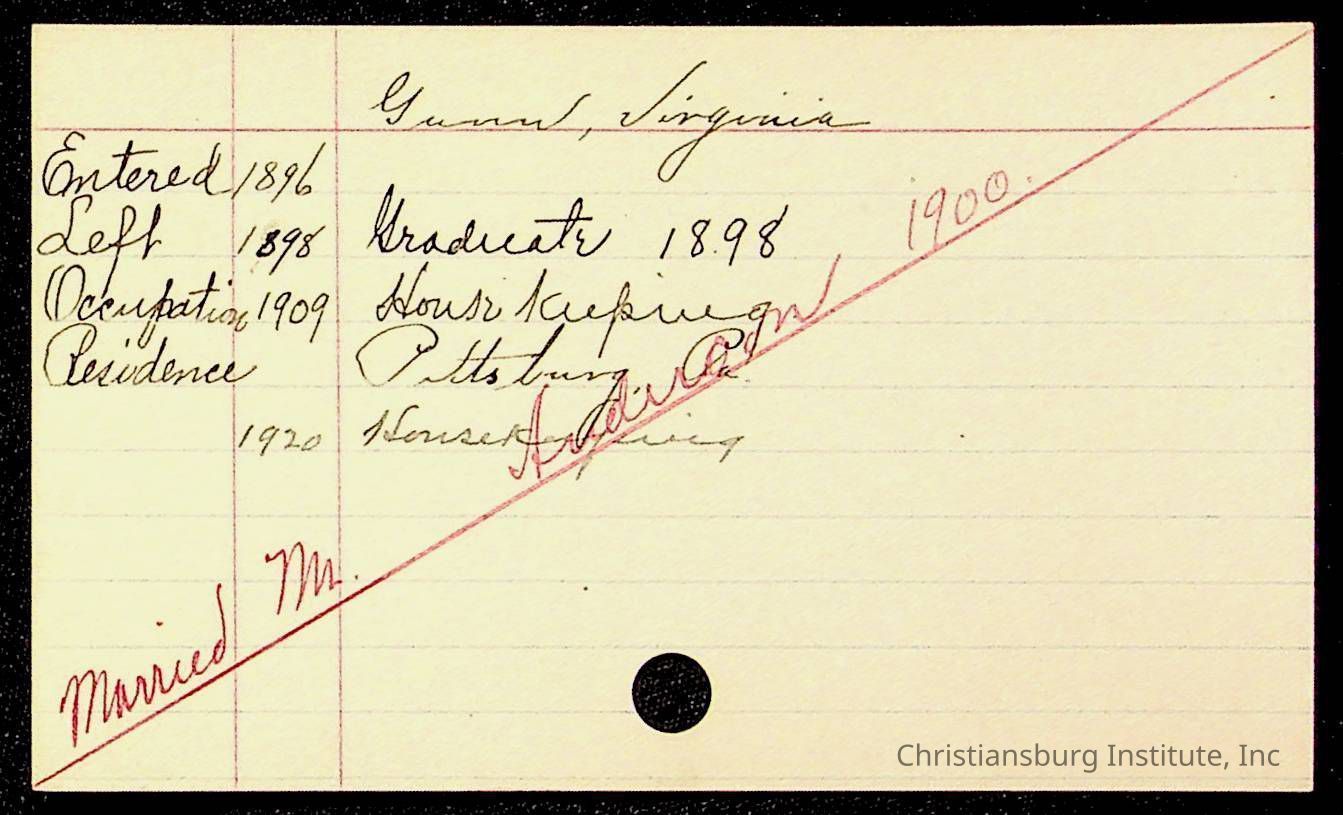 Gunn, Virginia
Entered 1896
Left 1898 Graduate 1898
Occupation 1909 House Keeping
Residence Pittsburg, Pa.
1920 Housekeeping
Married Mr. Anderson 1900.
Christiansburg Institute, Inc